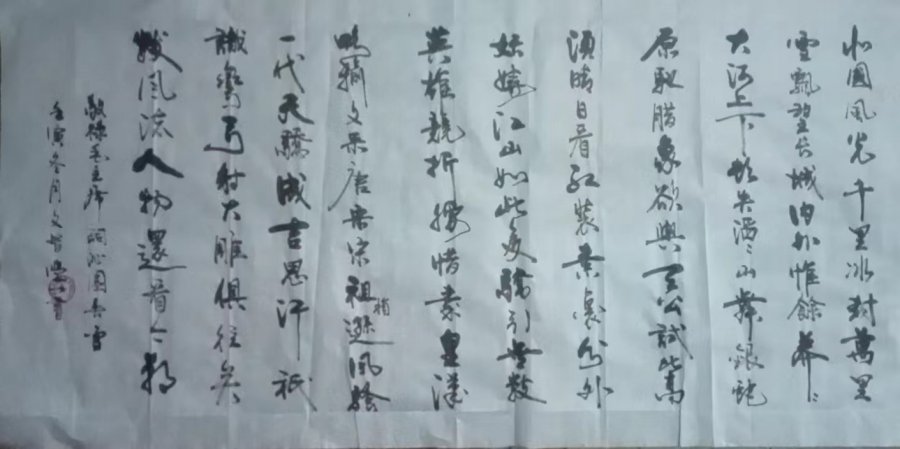 北國風光千里冰封萬里
雪飄望長城內外惟餘莽〻
大河上下頓失滔〻山舞銀蛇
原馳腊象欲與天公試比高
須晴日看紅裝素裹分外
妖嬈江山如此多驕引無數
英雄競折腰惜秦皇漢
略輸文采唐宗宋祖稍遜風騷
一代天驕成吉思汗祇
識彎弓射大雕俱往矣
數風流人物還看今朝
敬錄毛主席詞沁園春雪
壬寅冬月文